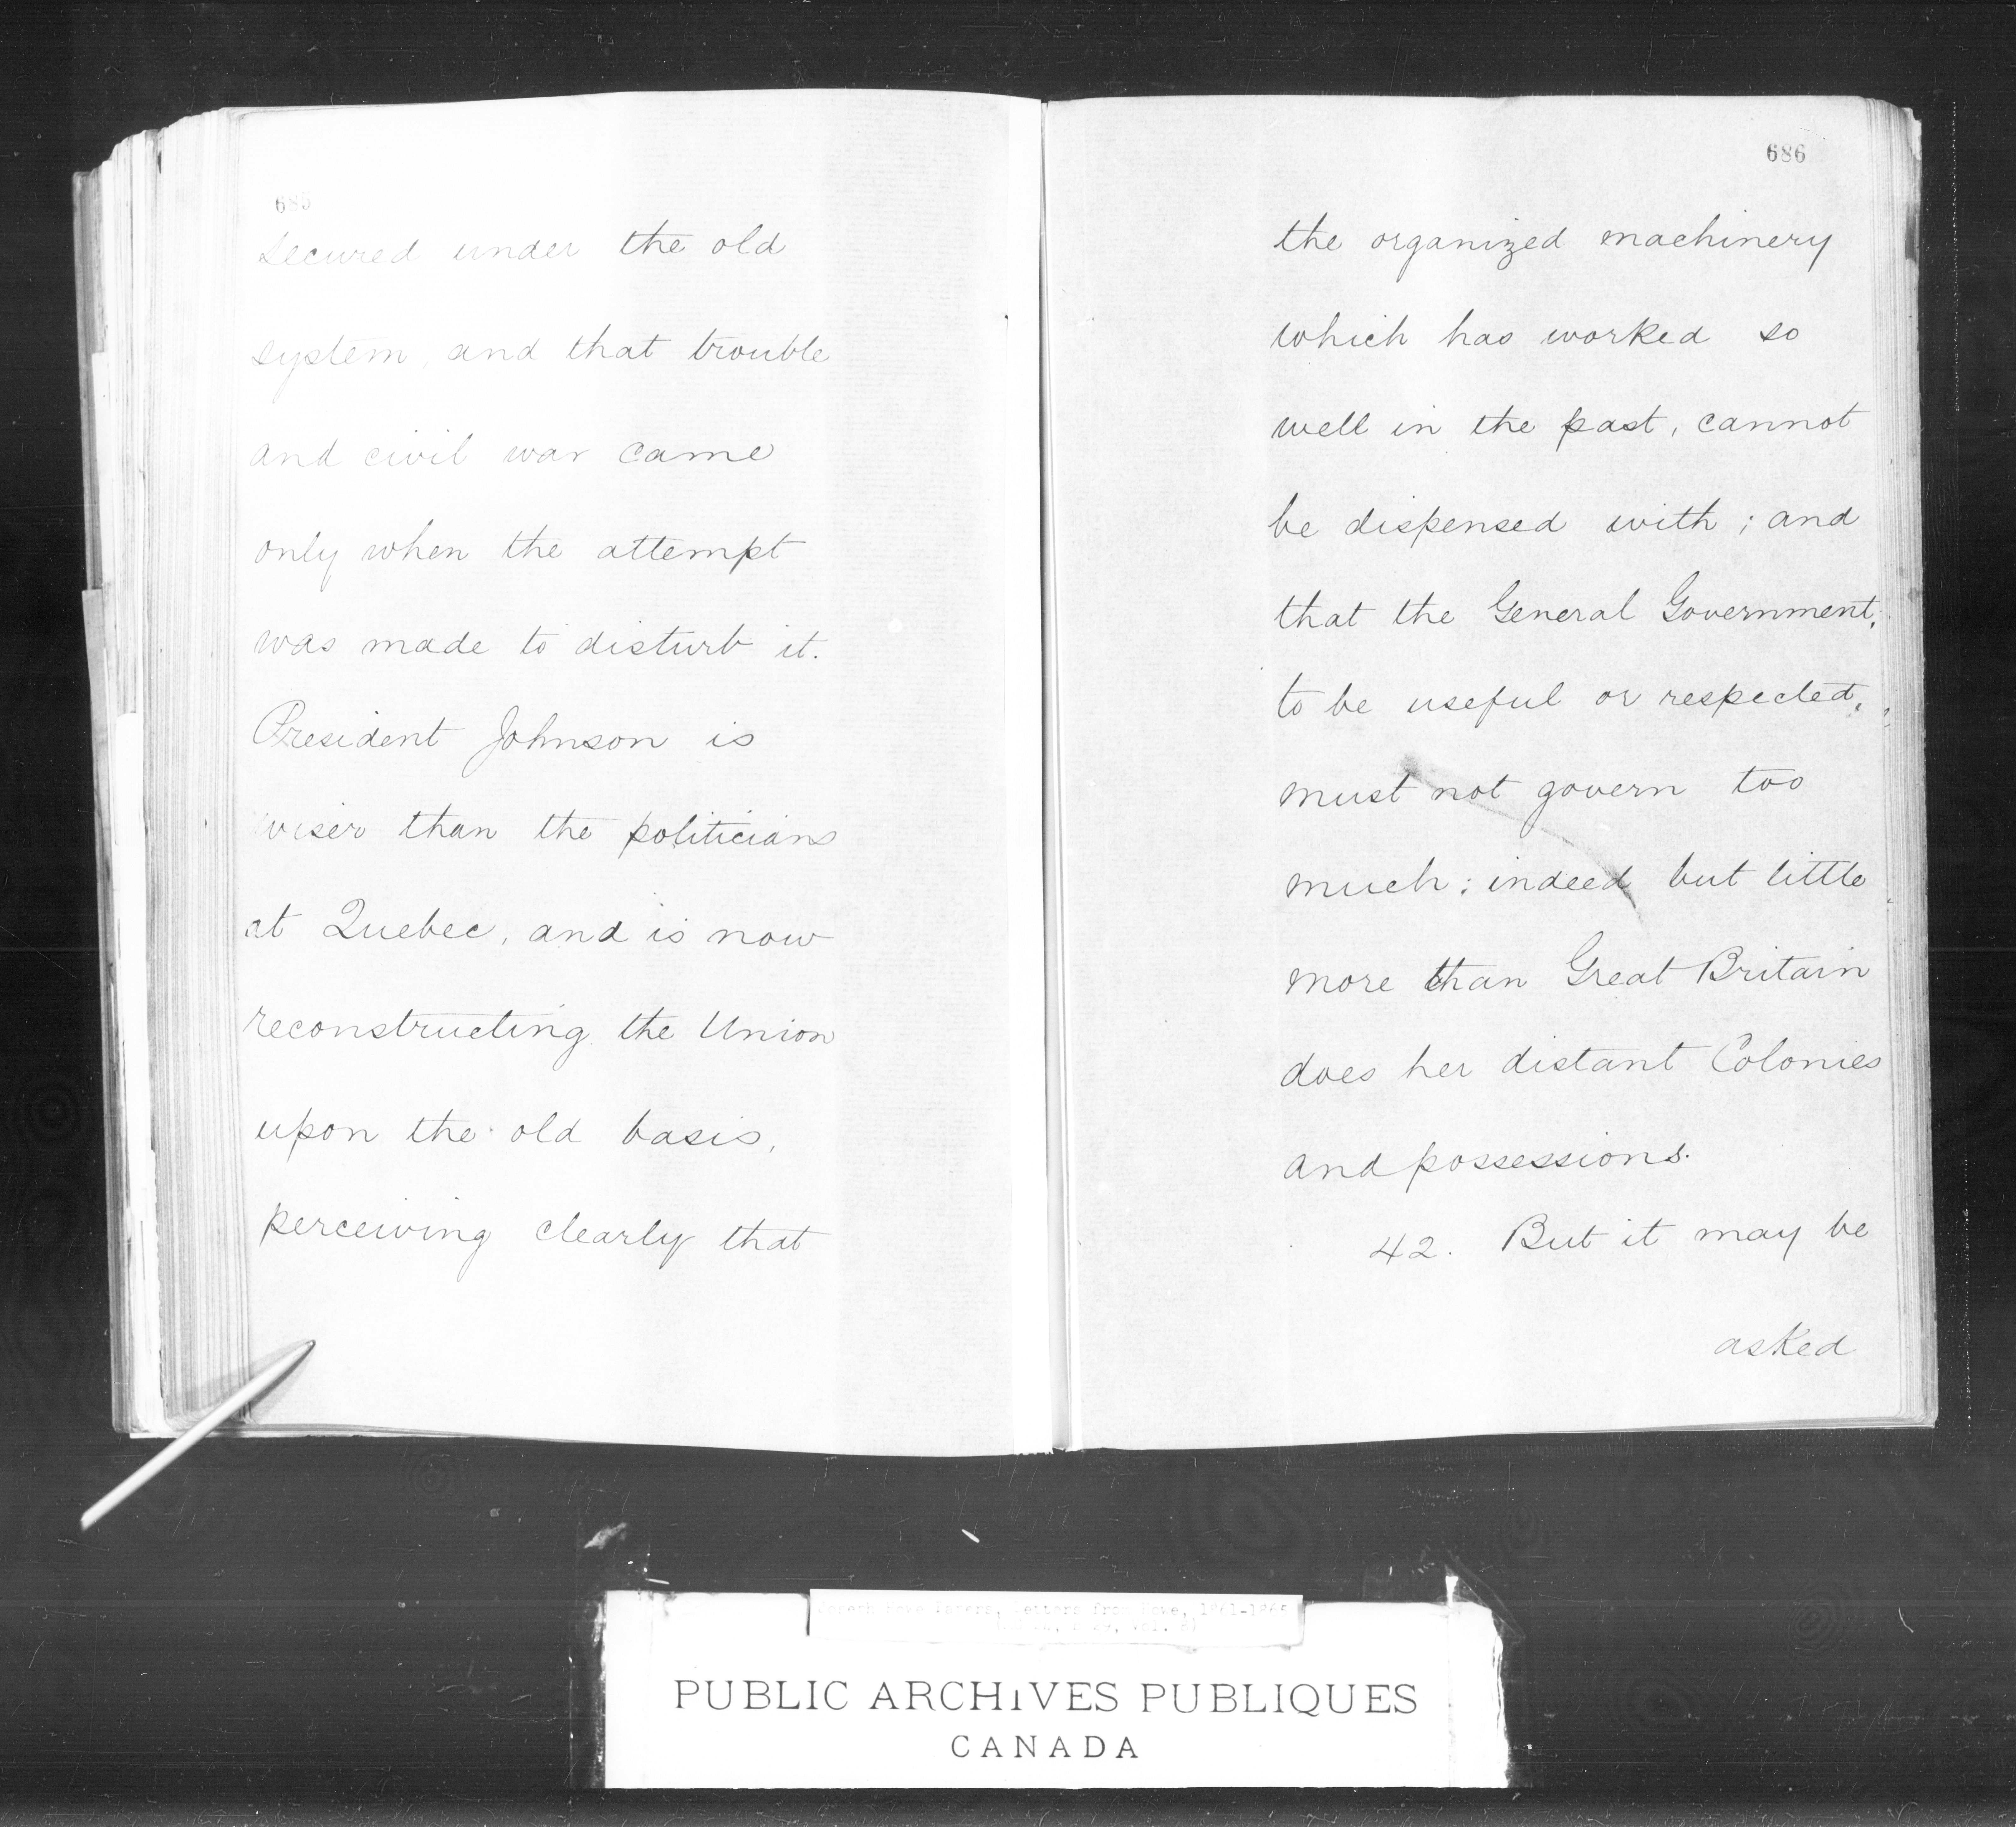 685
secured under the old
system, and that trouble
and civil war came
only when the attempt
was made to disturb it.
President Johnson is
wiser than the politicians
at Quebec, and is now
reconstructing the Union
upon the old basis,
perceiving clearly that
686
the organized machinery
which has worked so
well in the past, cannot
be dispensed with; and
that the General Government,
to be useful or respected,
must not govern too
much; indeed but little
more than Great Britain
does her distant Colonies
and possessions.
42. But it may be
asked
Joseph Howe Papers, Letters from Howe, 1861-1865
PUBLIC ARCHIVES PUBLIQUES
CANADA